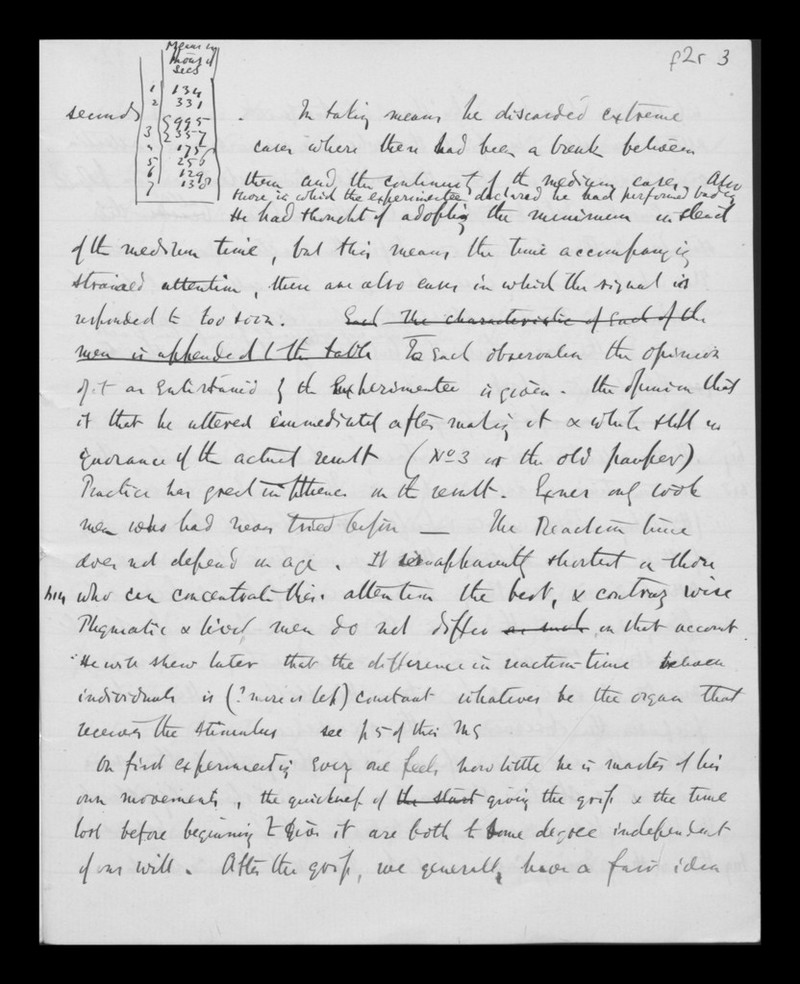 f2r 3
Means in
thous of
secs
1 134
2 331
3 { 995
357
4 175
5 256
6 129
7 138
seconds. In taking means he discarded extreme
cases where there had been a break between
them and the continuity of the medium cases. Also
those in which the experimentee declared he had performed badly
He had thought of adopting the minimum instead
of the medium time, but this means the time accompanying
strained attention, there are also cases in which the signal is
responded to too soon. Each the characteristic of each of the
men is appended to the table To each observation the opinion
of it as entertained by the Experimentee is given. the opinion that
is that he uttered immediately after making it & while still in
ignorance of the actual result (No 3 is the old pauper)
Practice has great influence on the result. Exner only took
men who had never tried before — The Reaction time
does not depend on age. It is apparently shortest in those
who can concentrate their attention the best, & contrary wise
Phlegmatic & lively men do not differ on that account
He will shew later that the difference in reaction-time between
individuals is (? more or less) constant whatever be the organ that
receives the stimulus see p 5 of this MS
On first experimenting every one feels how little he is master of his
own movements, the quickness of the start giving the grip & the time
lost before beginning to give it are both to some degree independent
of our will. After the grip, we generally have a fair idea